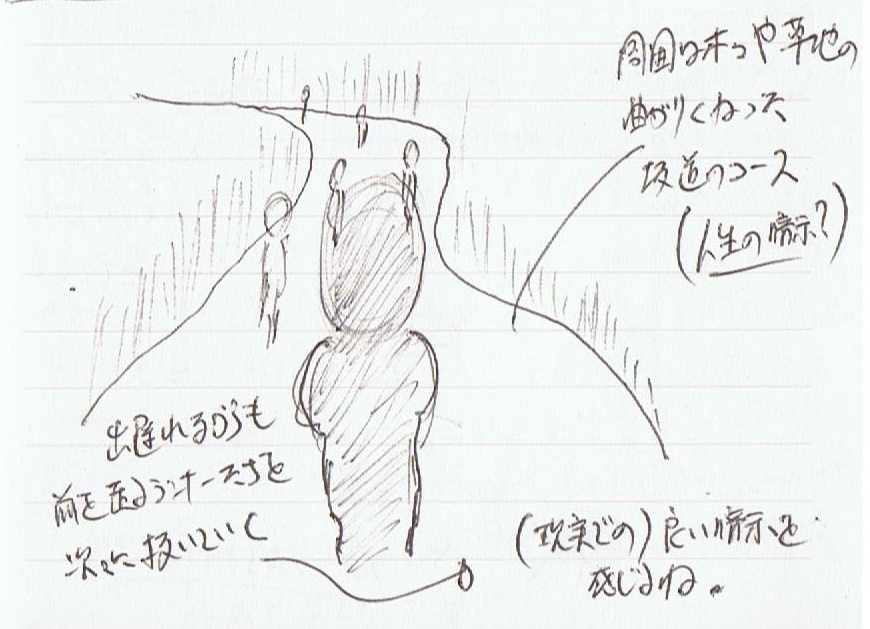 周囲は木々や草地の
曲がりくねった
坂道のコース
(人生の暗示?)
出遅れながらも
前を走るランナーたちを
次々に抜いていく
(現実での)良い暗示を
感じるね。